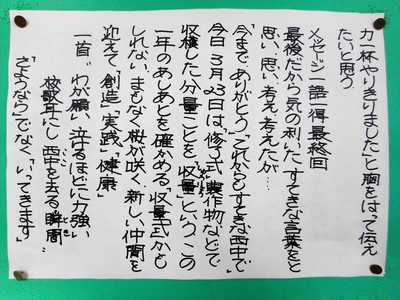 力一杯やりきりました」と胸をはって伝え
たいと思う。
メッセージ一語一得最終回
最後だから気の利いた、すてきな言葉をと
思い、思い、考え、考えたが…
「今まで、ありがとう。これからもすてきな西中で」
今日3月23日は、修了式。製作物などで
収穫した分量ことを、収量という。この
一年のあしあとを確かめる「収量式かも
しれない。まもなく桜が咲く、新しい仲間を
迎えて、創造、実践、健康」
一首、わが願い 泣けるほどに 力強い
校歌耳にし 西中を去る 瞬間
ここ
とき
「さようなら」でなく、「いってきます」